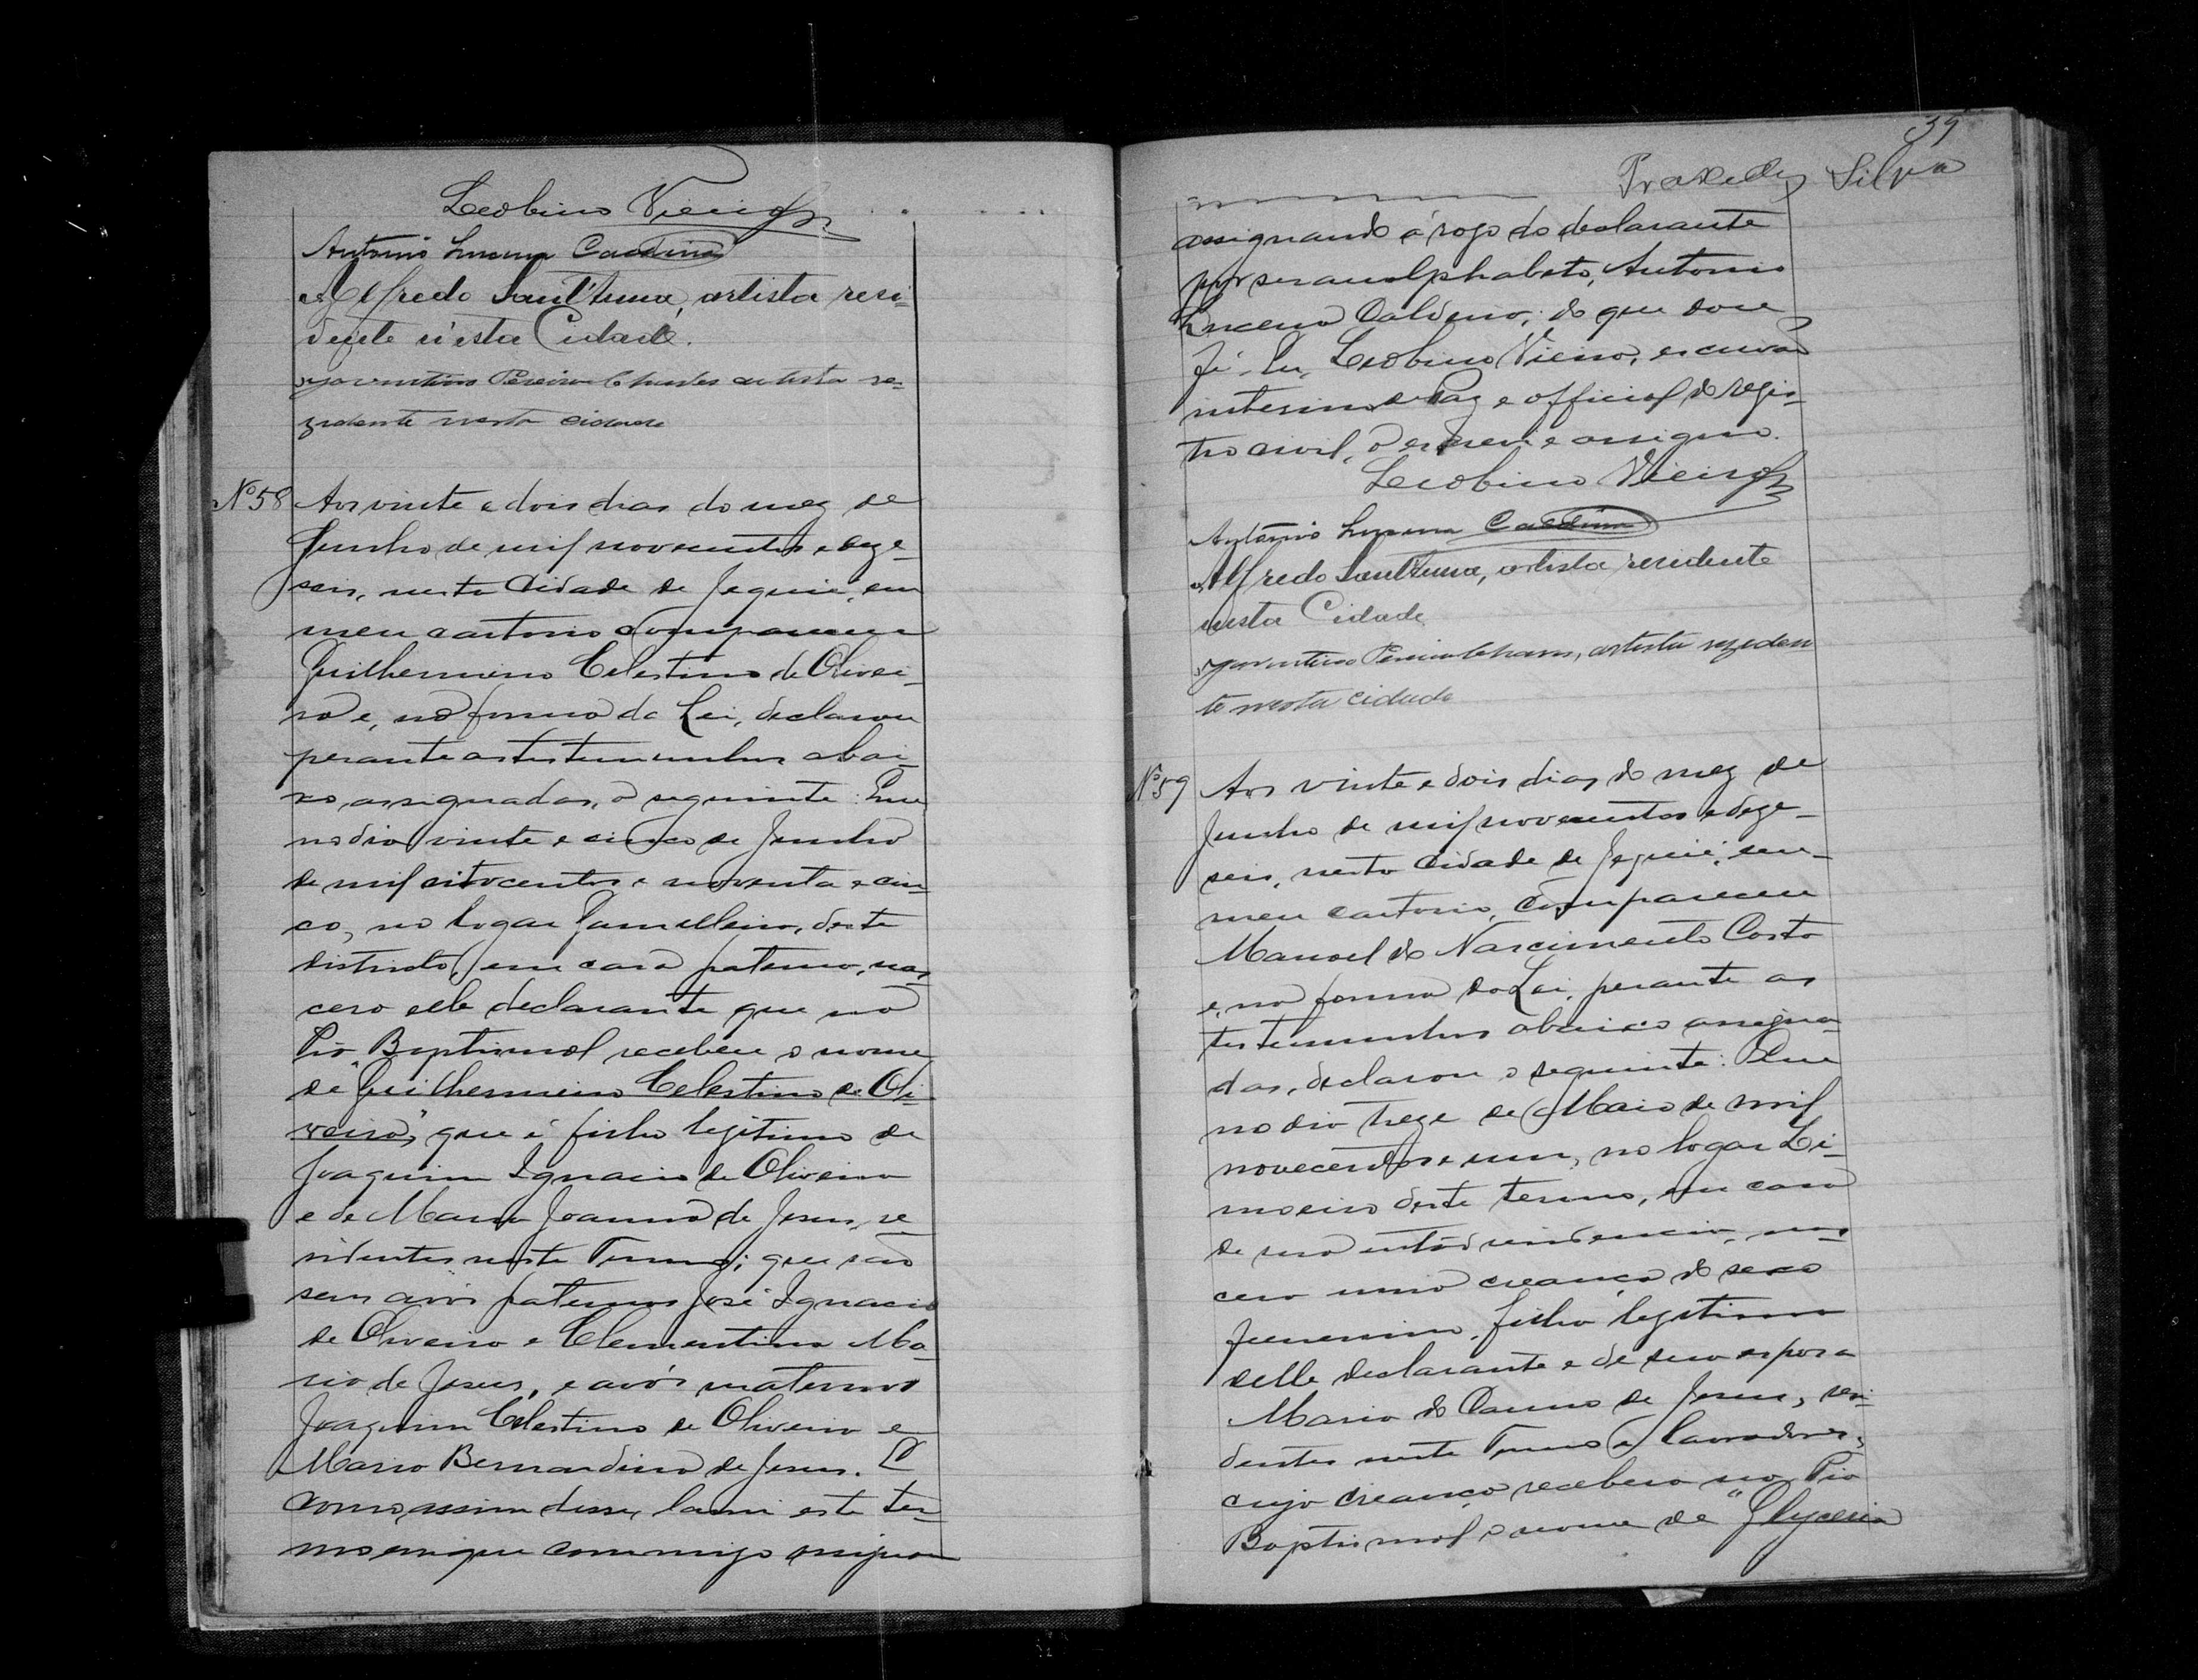 Leobino Vieira
Antonio Lucena Caldeira
Alfredo Sant'Anna, artista resi-
dente n'esta Cidade.
Pereira Chaves artista re-
zidente nesta cidade
Nº 58 Aos vinte e dois dias do mez de
Junho de mil novecentos e deze-
seis, nesta Cidade de Jequié, em
meu cartorio compareceu
Guilhermino Celestino de Olivei-
ra e, na forma da Lei, declarou
perante as testemunhas abai-
xo assignadas, o seguinte: Que
no dia vinte e cinco de Junho
de mil oitocentos e noventa e cin-
co, no logar Gamelleira, deste
districto, em casa paterna, nas
ceo elle declarante que na
Pia Baptismal recebeu o nome
de "Guilhermino Celestino de Oli-
veira", que é filho legitimo de
Joaquim Ignacio de Oliveira
e de Maria Joanna de Jesus, re-
sidentes neste Termo; que são
seus avós paternos José Ignacio
de Oliveira e Clementina Ma-
ria de Jesus, e avós maternos
Joaquim Celestino de Oliveira e
Maria Bernardina de Jesus. E
como assim disse, lavrei este ter-
mo em que commigo assignou
39
Praxedes Silva
assignando á rogo do declarante
por ser analphabeto, Antonio
Lucena Caldeira; do que dou
fé. Eu, Leobino Vieira, escrivão
interino de Paz e official do regis-
tro civil, o escrevi e assigno.
Leobino Vieira
Antonio Lucena Caldeira
Alfredo Sant'Anna, artista residente
nesta Cidade
Pereira Chaves, artista reziden
te nesta cidade
Nº 59 Aos vinte e dois dias do mez de
Junho de mil novecentos e deze-
seis, nesta Cidade de Jequié, em
meu cartorio, compareceu
Manoel do Nascimento Costa
e, na forma da Lei, perante as
testemunhas abaixo assigna-
das, declarou o seguinte: Que
no dia treze de Maio de mil
novecentos e um, no logar Li-
moeiro deste termo, em casa
de sua então residencia, nas-
ceu uma creança do sexo
femenino, filha legitima
delle declarante e de sua esposa
Maria do Carmo de Jesus, resi-
dentes neste Termo e lavradores,
cuja creança recebera na Pia
Baptismal o nome de "Glyceria